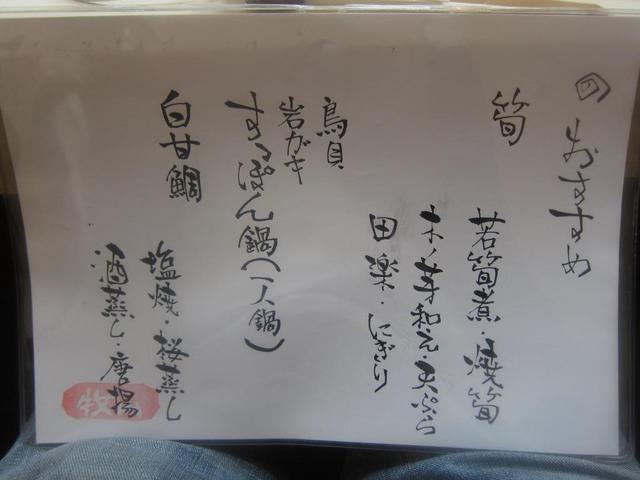 の おすすめ
筍
若筍煮・焼筍
木ノ芽和え・天ぷら
田楽・にぎり
鳥貝
岩ガキ
すっぽん鍋(一人鍋)
白甘鯛
塩焼・桜蒸し
酒蒸し・唐揚
牧